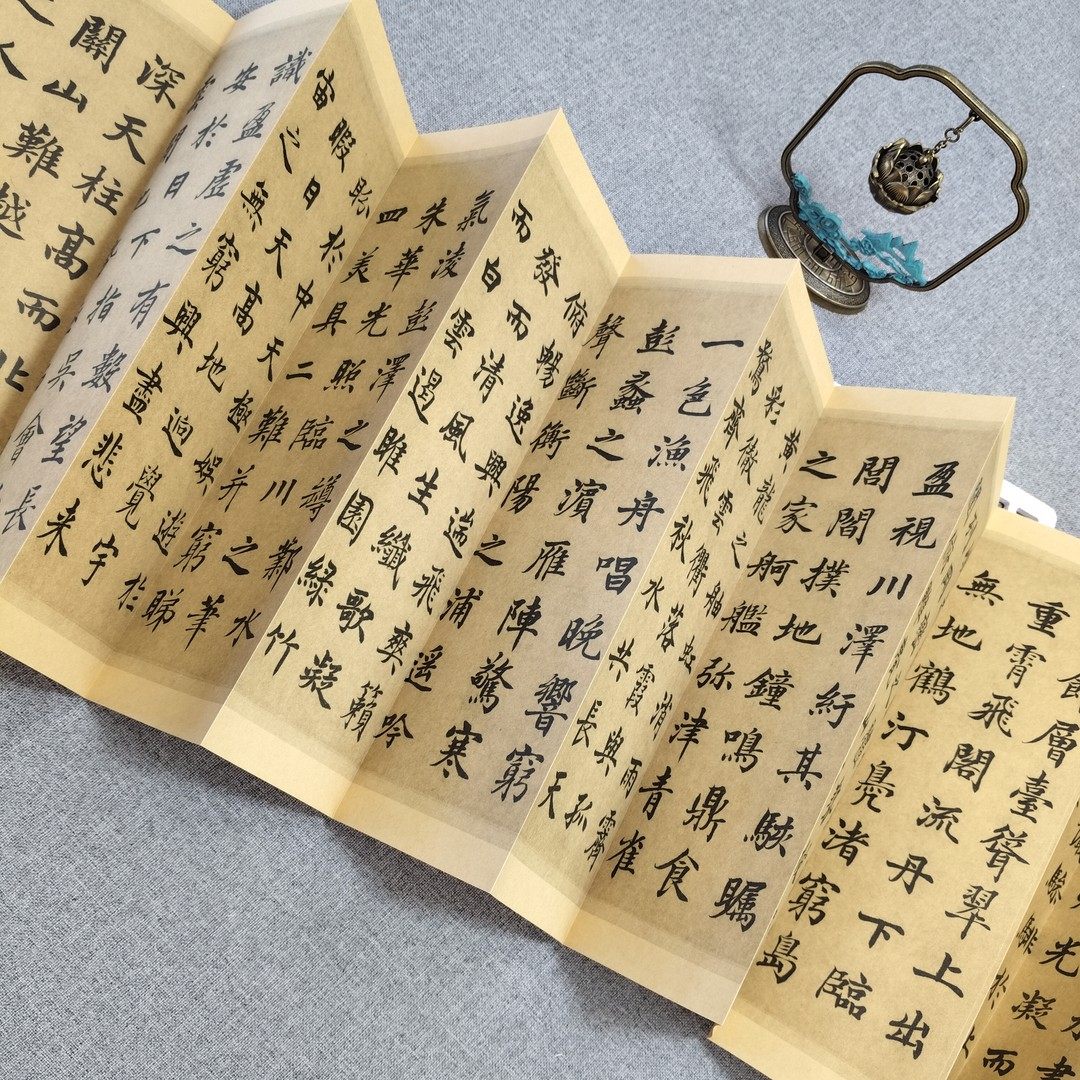 驂騑於
光凝而
層臺聳翠上出
重霄飛閣流丹下臨
無地鶴汀鳧渚窮島
盈視川澤紆其駛矚
閭閻撲地鐘鳴鼎食
之家舸艦弥津青雀
黃龍之舳虹消雨霽
彩徹雲衢落霞與孤
鶩齊飛秋水共長天
一色漁舟唱晚響窮
彭蠡之濱雁陣驚寒
聲斷衡陽之浦遙吟
俯暢逸興遄飛爽籟
發而清風生纖歌凝
而白雲遏睢園綠竹
氣凌彭澤之罇鄴水
朱華光照臨川之筆
四美具二難并窮睇
眄於中天極娛遊於
暇日天高地迥覺宇
宙之無窮興盡悲来
識盈虛之有數望長
安於日下指吳會
深天柱高而北
關山難越